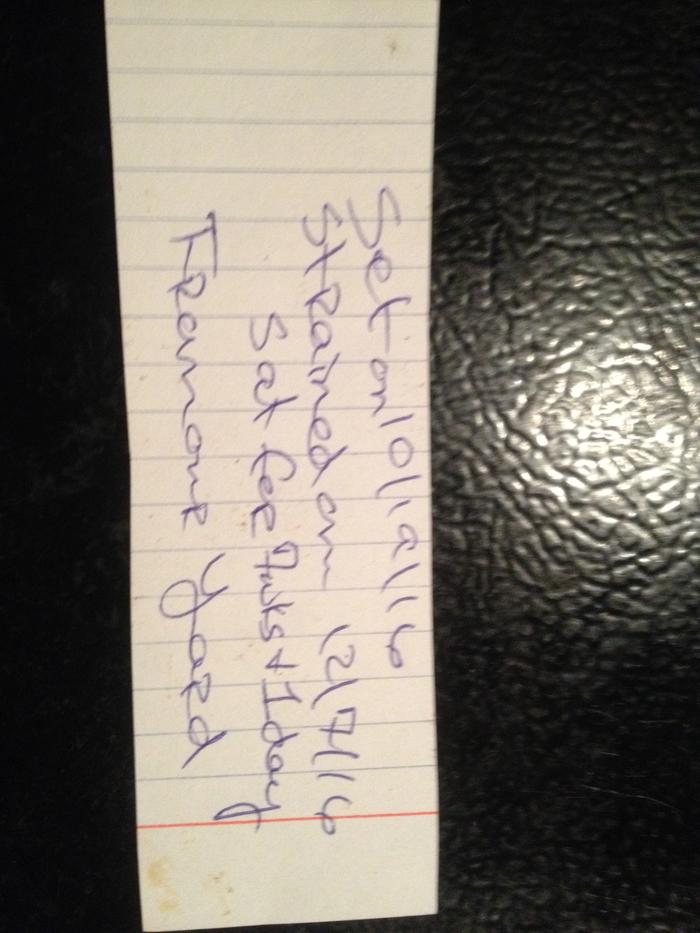 Set on 10/19/16
Strained on 12/7/16
Sat for 7wks + 1day
Framour Yard